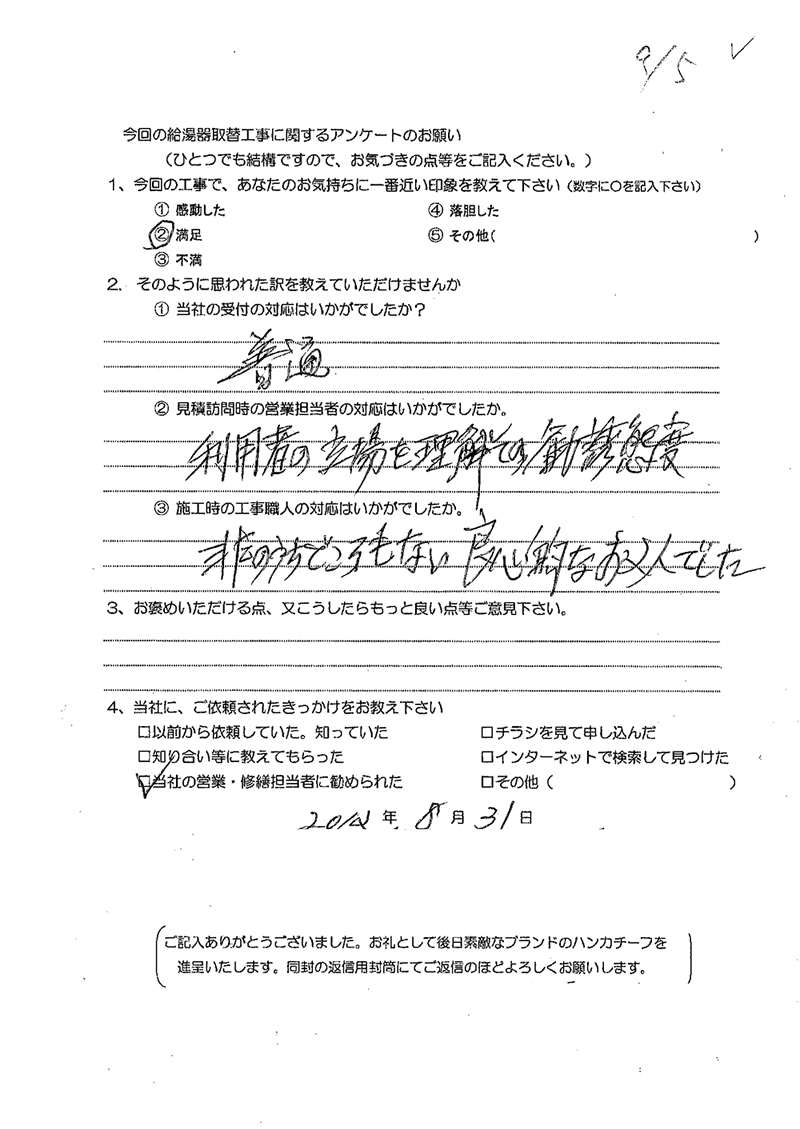 9/5 ✓
今回の給湯器取替工事に関するアンケートのお願い
（ひとつでも結構ですので、お気づきの点等をご記入ください。）
1、今回の工事で、あなたのお気持ちに一番近い印象を教えて下さい（数字に〇を記入下さい）
① 感動した ④ 落胆した
② 満足 ⑤ その他（ ）
③ 不満
2．そのように思われた訳を教えていただけませんか
① 当社の受付の対応はいかがでしたか？
普通
② 見積訪問時の営業担当者の対応はいかがでしたか。
利用者の立場を理解しての勧誘態度
③ 施工時の工事職人の対応はいかがでしたか。
非のうちどころもない 良心的なお人でした
3、お褒めいただける点、又こうしたらもっと良い点等ご意見下さい。
4、当社に、ご依頼されたきっかけをお教え下さい
□以前から依頼していた。知っていた □チラシを見て申し込んだ
□知り合い等に教えてもらった □インターネットで検索して見つけた
□当社の営業・修繕担当者に勧められた □その他（ ）
年 8 月 31 日
ご記入ありがとうございました。お礼として後日素敵なブランドのハンカチーフを
進呈いたします。同封の返信用封筒にてご返信のほどよろしくお願いします。